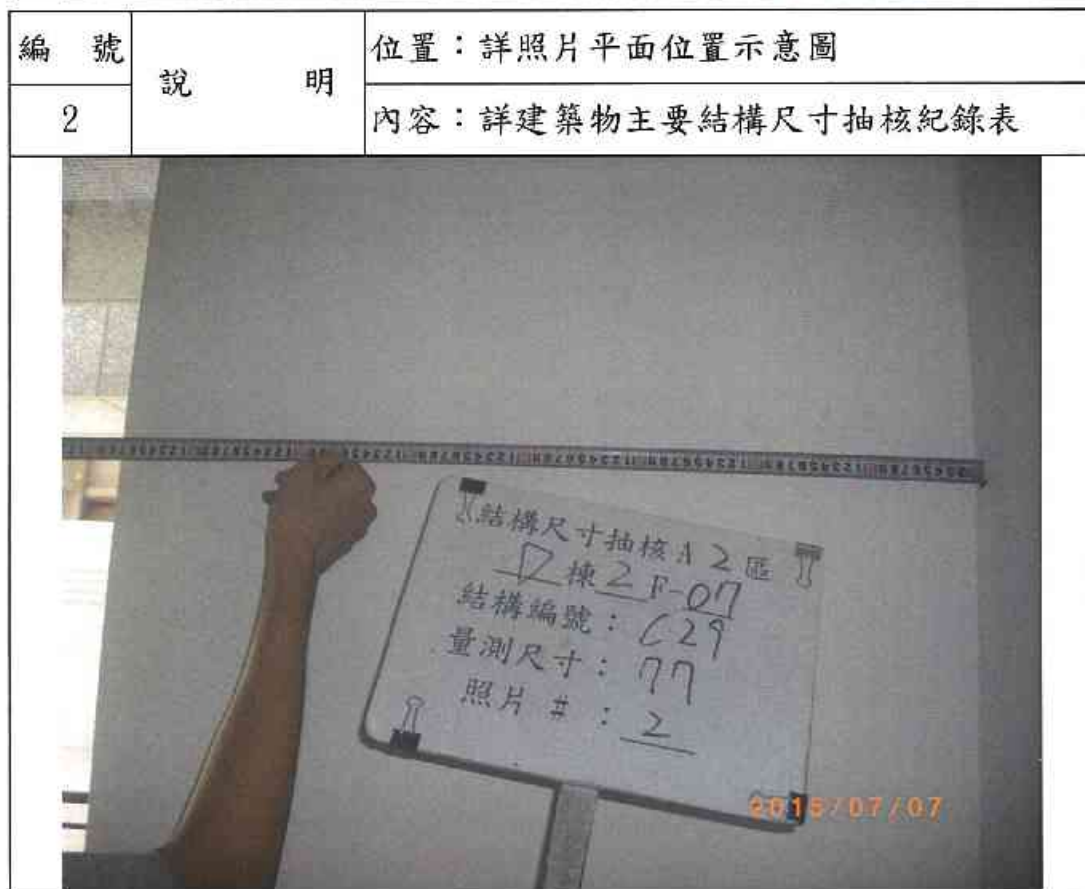 編 號
說 明
位置：詳照片平面位置示意圖
2
內容：詳建築物主要結構尺寸抽核紀錄表
結構尺寸抽核A 2 區
D 棟 2 F-07
結構編號：C29
量測尺寸：77
照片 #：2
2015/07/07